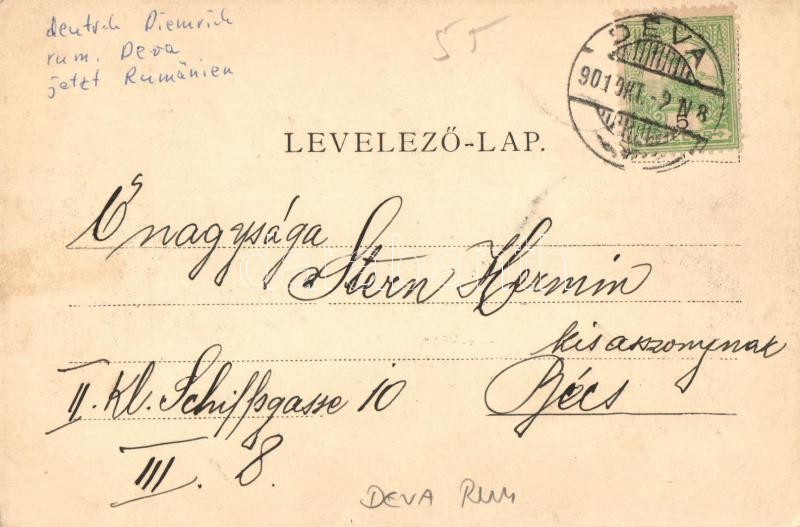 deutsch Diemrich
rum. Deva
jetzt Rumänien
55
DÉVA
901 OKT. -2 N 8
5
LEVELEZŐ-LAP.
Őnagysága
Stern Hermin
kisasszonynak
II. Kl. Schiffgasse 10
Bécs
III. 8.
DEVA RUM